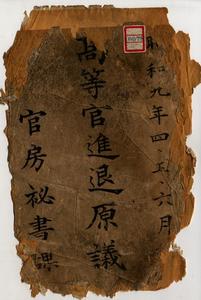 昭和九年四、五、六月
高等官進退原議
官房秘書課